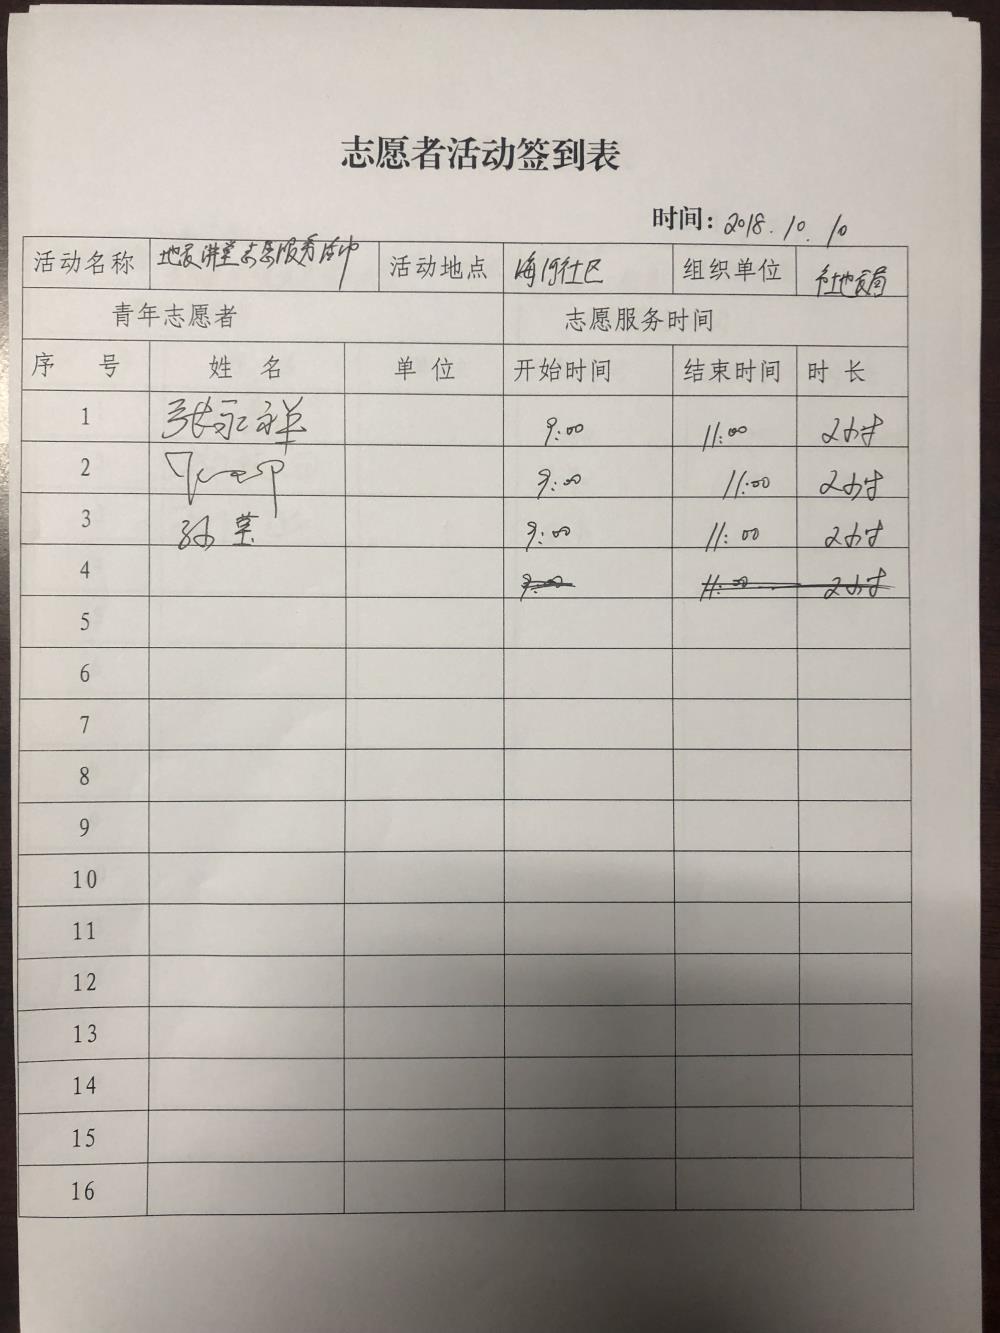 志愿者活动签到表
时间: 2018.10.10
活动名称 地震讲堂志愿服务活动 活动地点 海河社区 组织单位 地震局
青年志愿者 志愿服务时间
序 号 姓 名 单 位 开始时间 结束时间 时 长
1 张永祥 9:00 11:00 2小时
2 9:00 11:00 2小时
3 孙 9:00 11:00 2小时
4 9:00 11:00 2小时
5
6
7
8
9
10
11
12
13
14
15
16